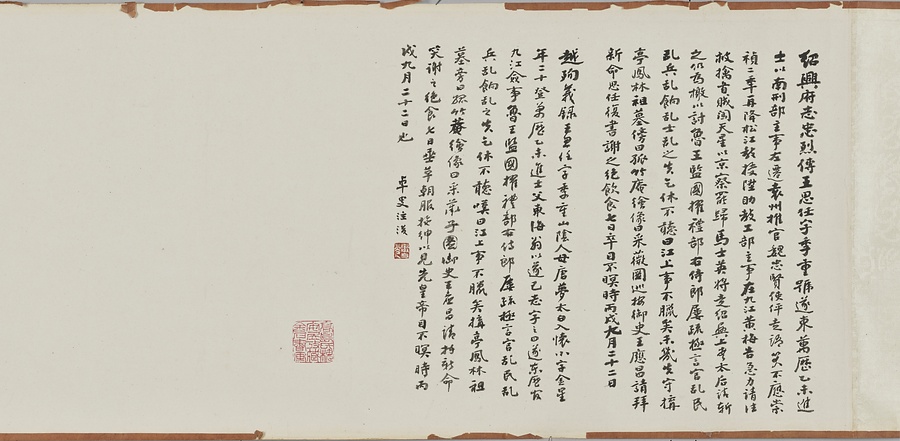 紹興府志忠烈傳王思任字季重號遂東萬歷乙未進
士以南刑部主事左遷袁州推官魏忠賢使倅走謁笑不應崇
禎二年再降松江教授陞助教工部主事在九江黃梅告急力請往
被擒首賊闖天星以京察罷歸馬士英將走紹興上書太后請斬
之仍為檄以討魯王監國擢禮部右侍郎屢疏極言官亂民
亂兵亂餉亂士亂之失乞休不聽曰江上事不臘矣未幾失守搆
亭鳳林祖墓傍曰孤竹庵繪像曰采薇圖巡按御史王應昌請拜
新命思任復書謝之絕飲食七日卒目不瞑時丙戌九月二十二日
越殉義錄王思任字季重山陰人母唐夢太白入懷小字金星
年二十登萬歷乙未進士父東海翁以遂乙志字之曰遂東歷官
九江僉事魯王監國擢禮部右侍郎屢疏極言官亂民亂
兵亂餉亂之失乞休不聽嘆曰江上事不臘矣搆亭鳳林祖
墓旁曰孤竹菴繪像曰采薇子圖御史王應昌請拜新命
笑謝之絕食七日垂卒朝服挍紳以見先皇帝目不瞑時丙
戌九月二十二日也
卓叟注淺